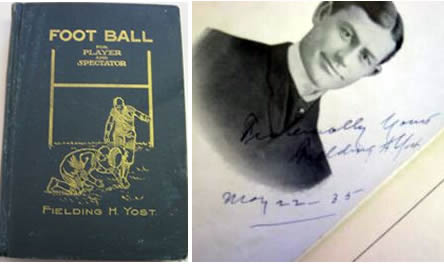 FOOT BALL
FOR
PLAYER
AND
SPECTATOR
FIELDING H. YOST.
Fraternally Yours
Fielding H Yost
May 22 - 35